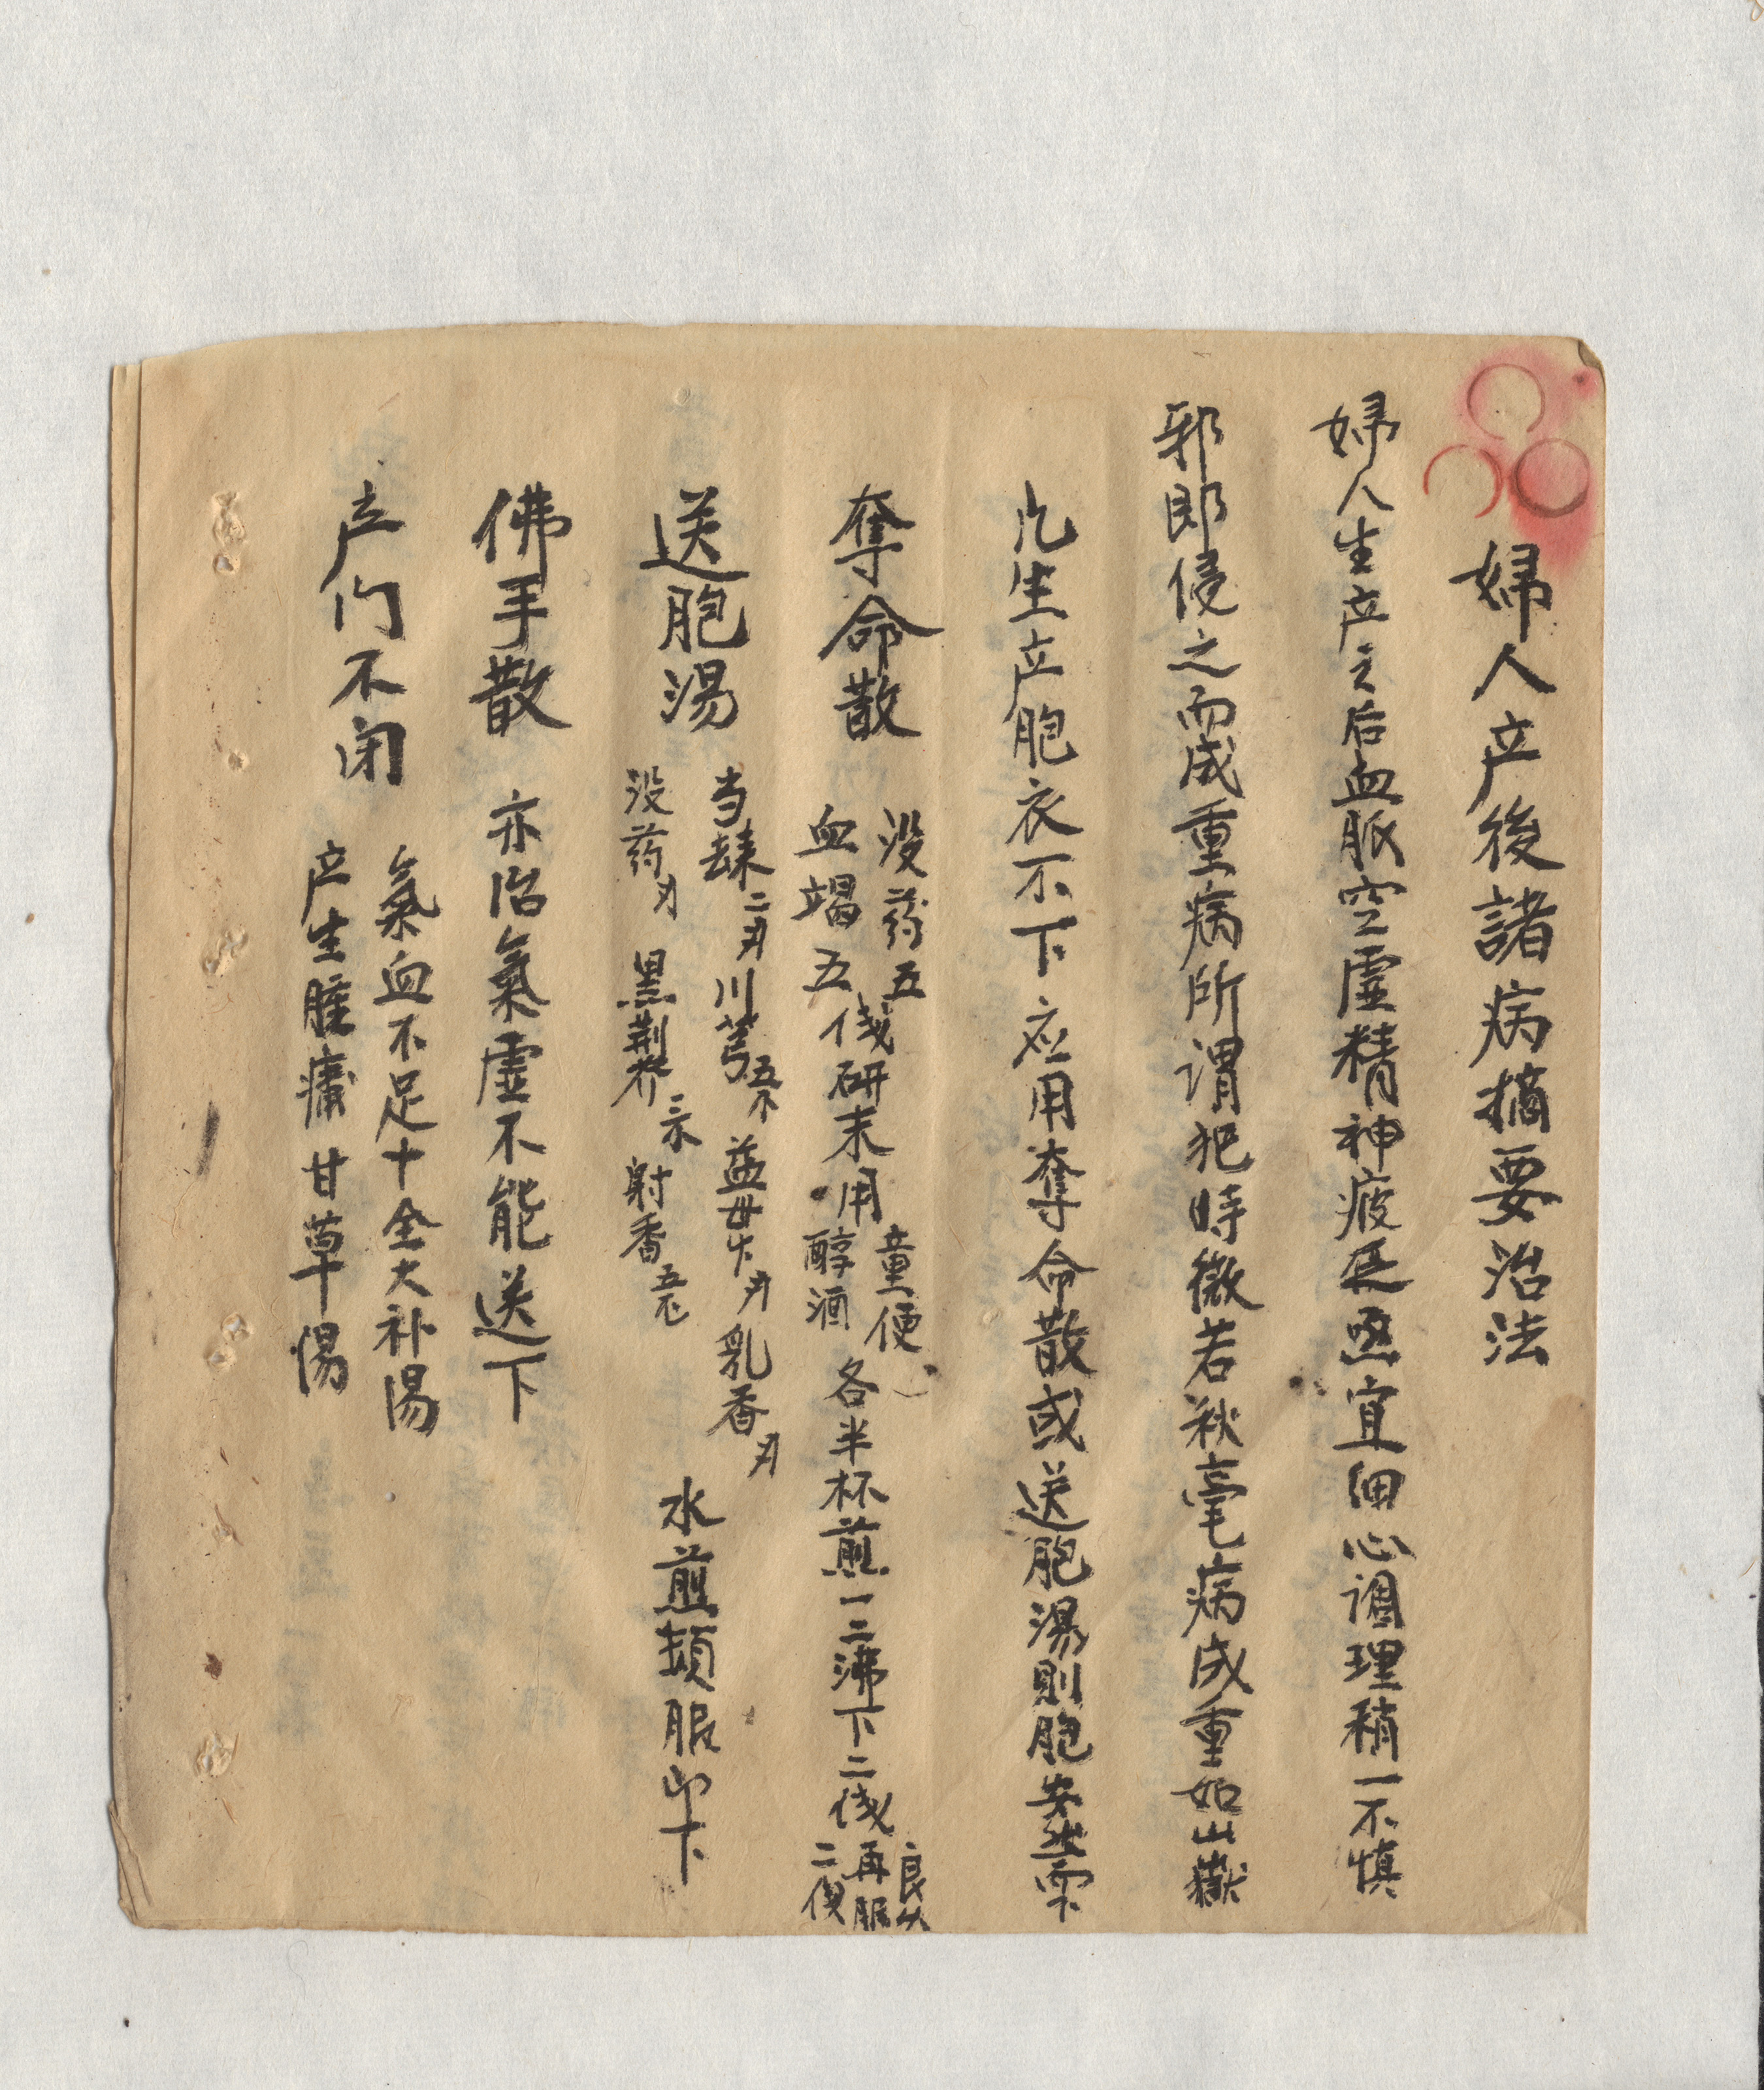 婦人产後諸病摘要治法
婦人生产之后血脈空虛精神疲惫宜細心调理稍一不慎
邪即侵之而成重病所谓犯時微若秋毫病成重如山嶽
凡生产胞衣不下应用奪命散或送胞湯則胞安然而下
奪命散
没药五
血竭五
伐研末用
童便
醇酒
各半杯煎一二沸下二伐
良久
再服
二伐
送胞湯
当歸二刄川芎五
益母十刄乳香刄
没药刄黑荆芥二
射香五
水煎頓服即下
佛手散
亦治氣虛不能送下
产门不闭
氣血不足十全大补湯
产生腫痛甘草湯